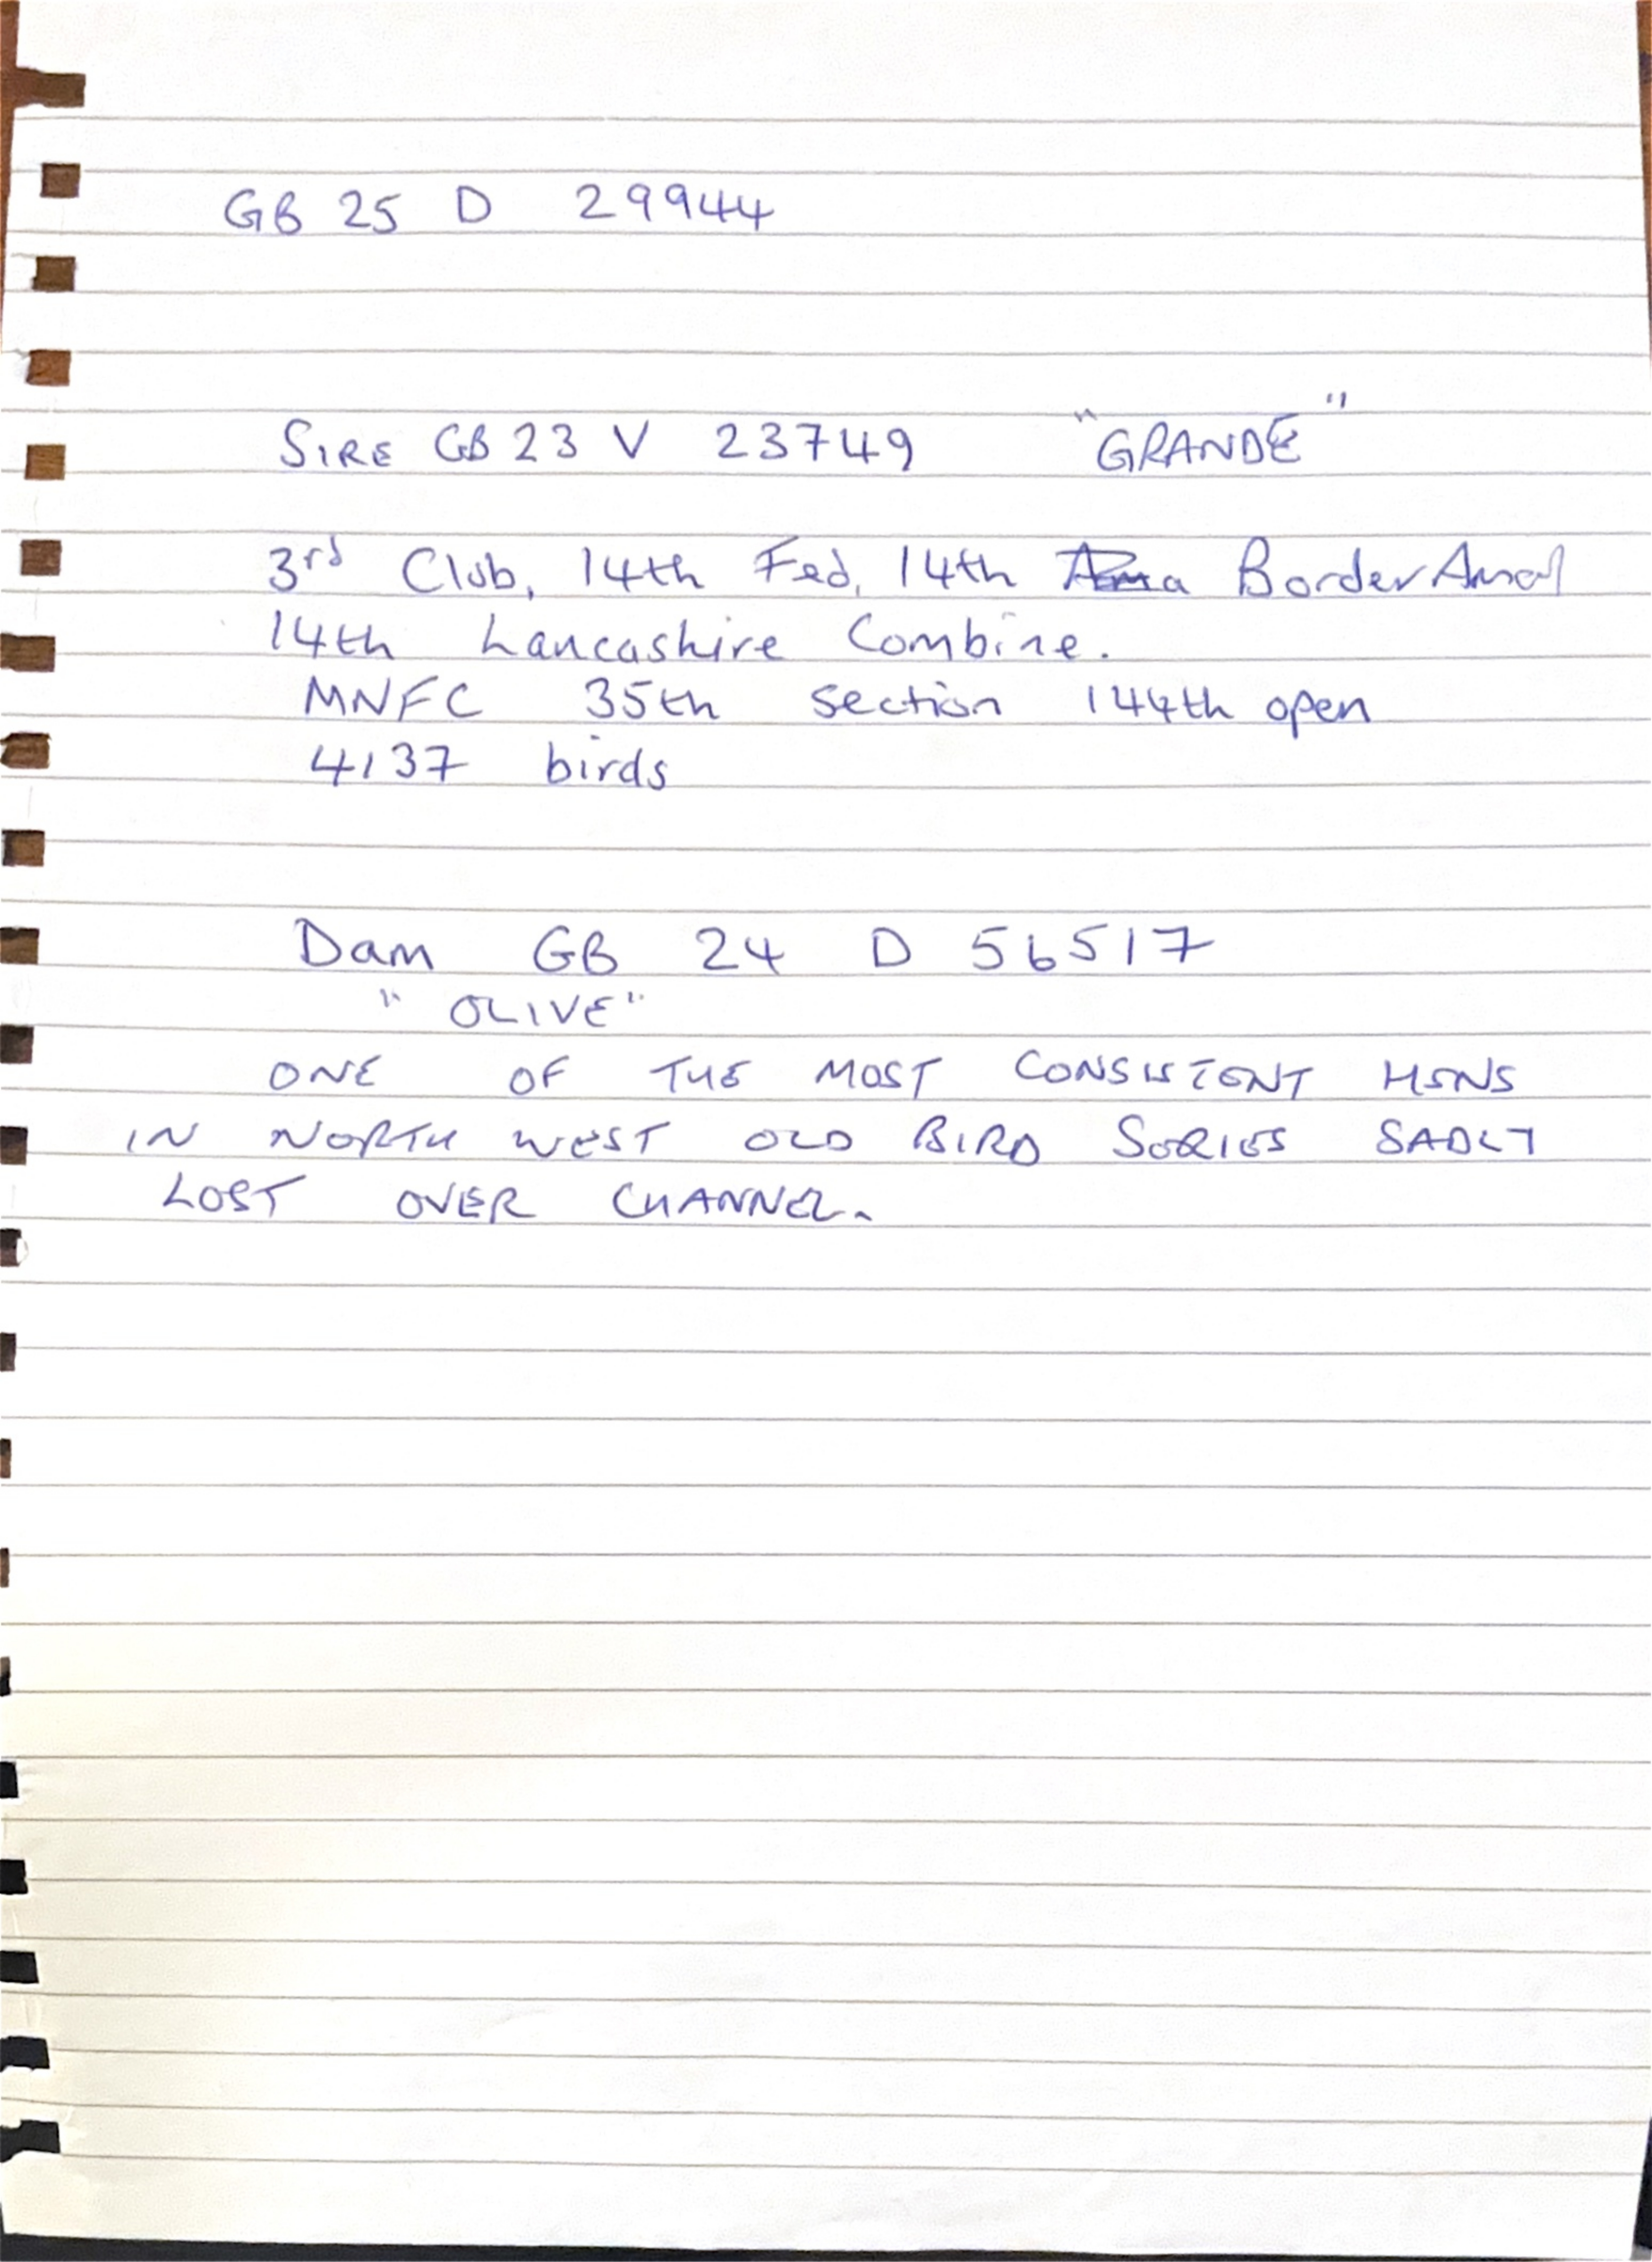 GB 25 D 29944
SIRE GB 23 V 23749 "GRANDE"
3rd Club, 14th Fed, 14th Border Amal
14th Lancashire Combine.
MNFC 35th section 144th open
4137 birds
Dam GB 24 D 56517
"OLIVE"
ONE OF THE MOST CONSISTENT HENS
IN NORTH WEST OLD BIRD SERIES SADLY
LOST OVER CHANNEL.